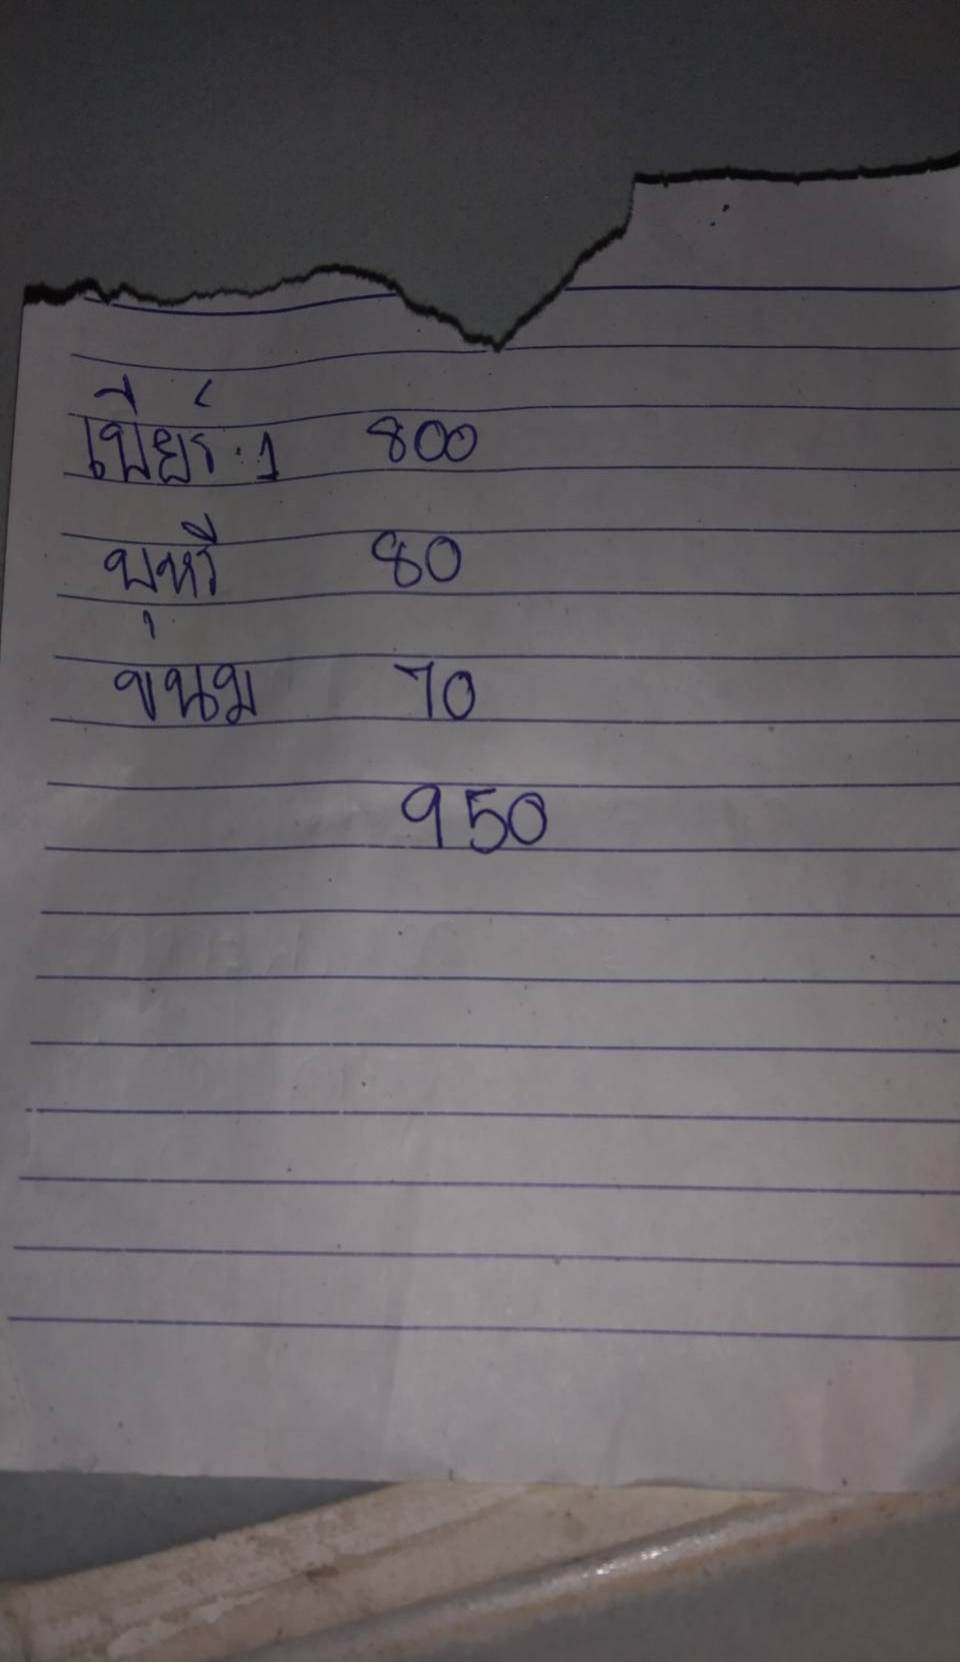 เบียร์ 1 800
บุหรี่ 80
ขนม 70
950